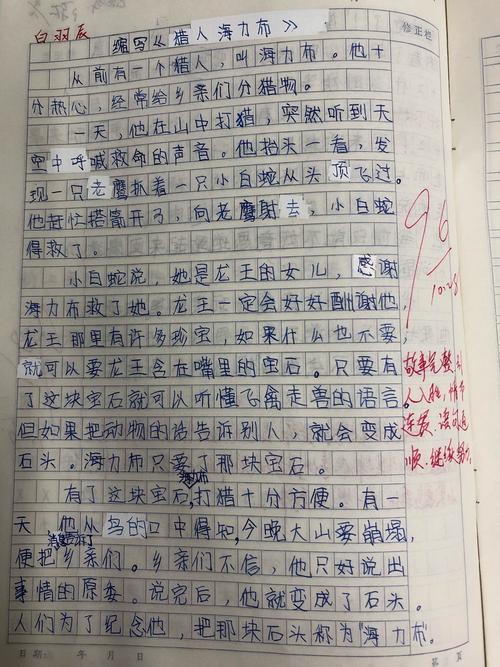 白羽辰
缩写《猎人海力布》
修正栏
从前有一个猎人，叫海力布。他十
分热心，经常给乡亲们分猎物。
一天，他在山中打猎，突然听到天
空中呼喊救命的声音。他抬头一看，发
现一只老鹰抓着一只小白蛇从头顶飞过。
他赶忙搭箭开弓，向老鹰射去，小白蛇
得救了。
小白蛇说，她是龙王的女儿，感谢
海力布救了她。龙王一定会好好酬谢他，
龙王那里有许多珍宝，如果什么也不要，
就可以要龙王含在嘴里的宝石。只要有
了这块宝石就可以听懂飞禽走兽的语言。
但如果把动物的话告诉别人，就会变成
石头。海力布只要了那块宝石。
有了这块宝石，海力布打猎十分方便。有一
天，他从鸟的口中得知，今晚大山要崩塌，
便把消息告诉了乡亲们。乡亲们不信，他只好说出
事情的原委。说完后，他就变成了石头。
人们为了纪念他，把那块石头称为"海力布"。
96
10.28
故事完整
人入胜，情节
连贯，语句通
顺。继续努力
日期： 年 月 日
第 页